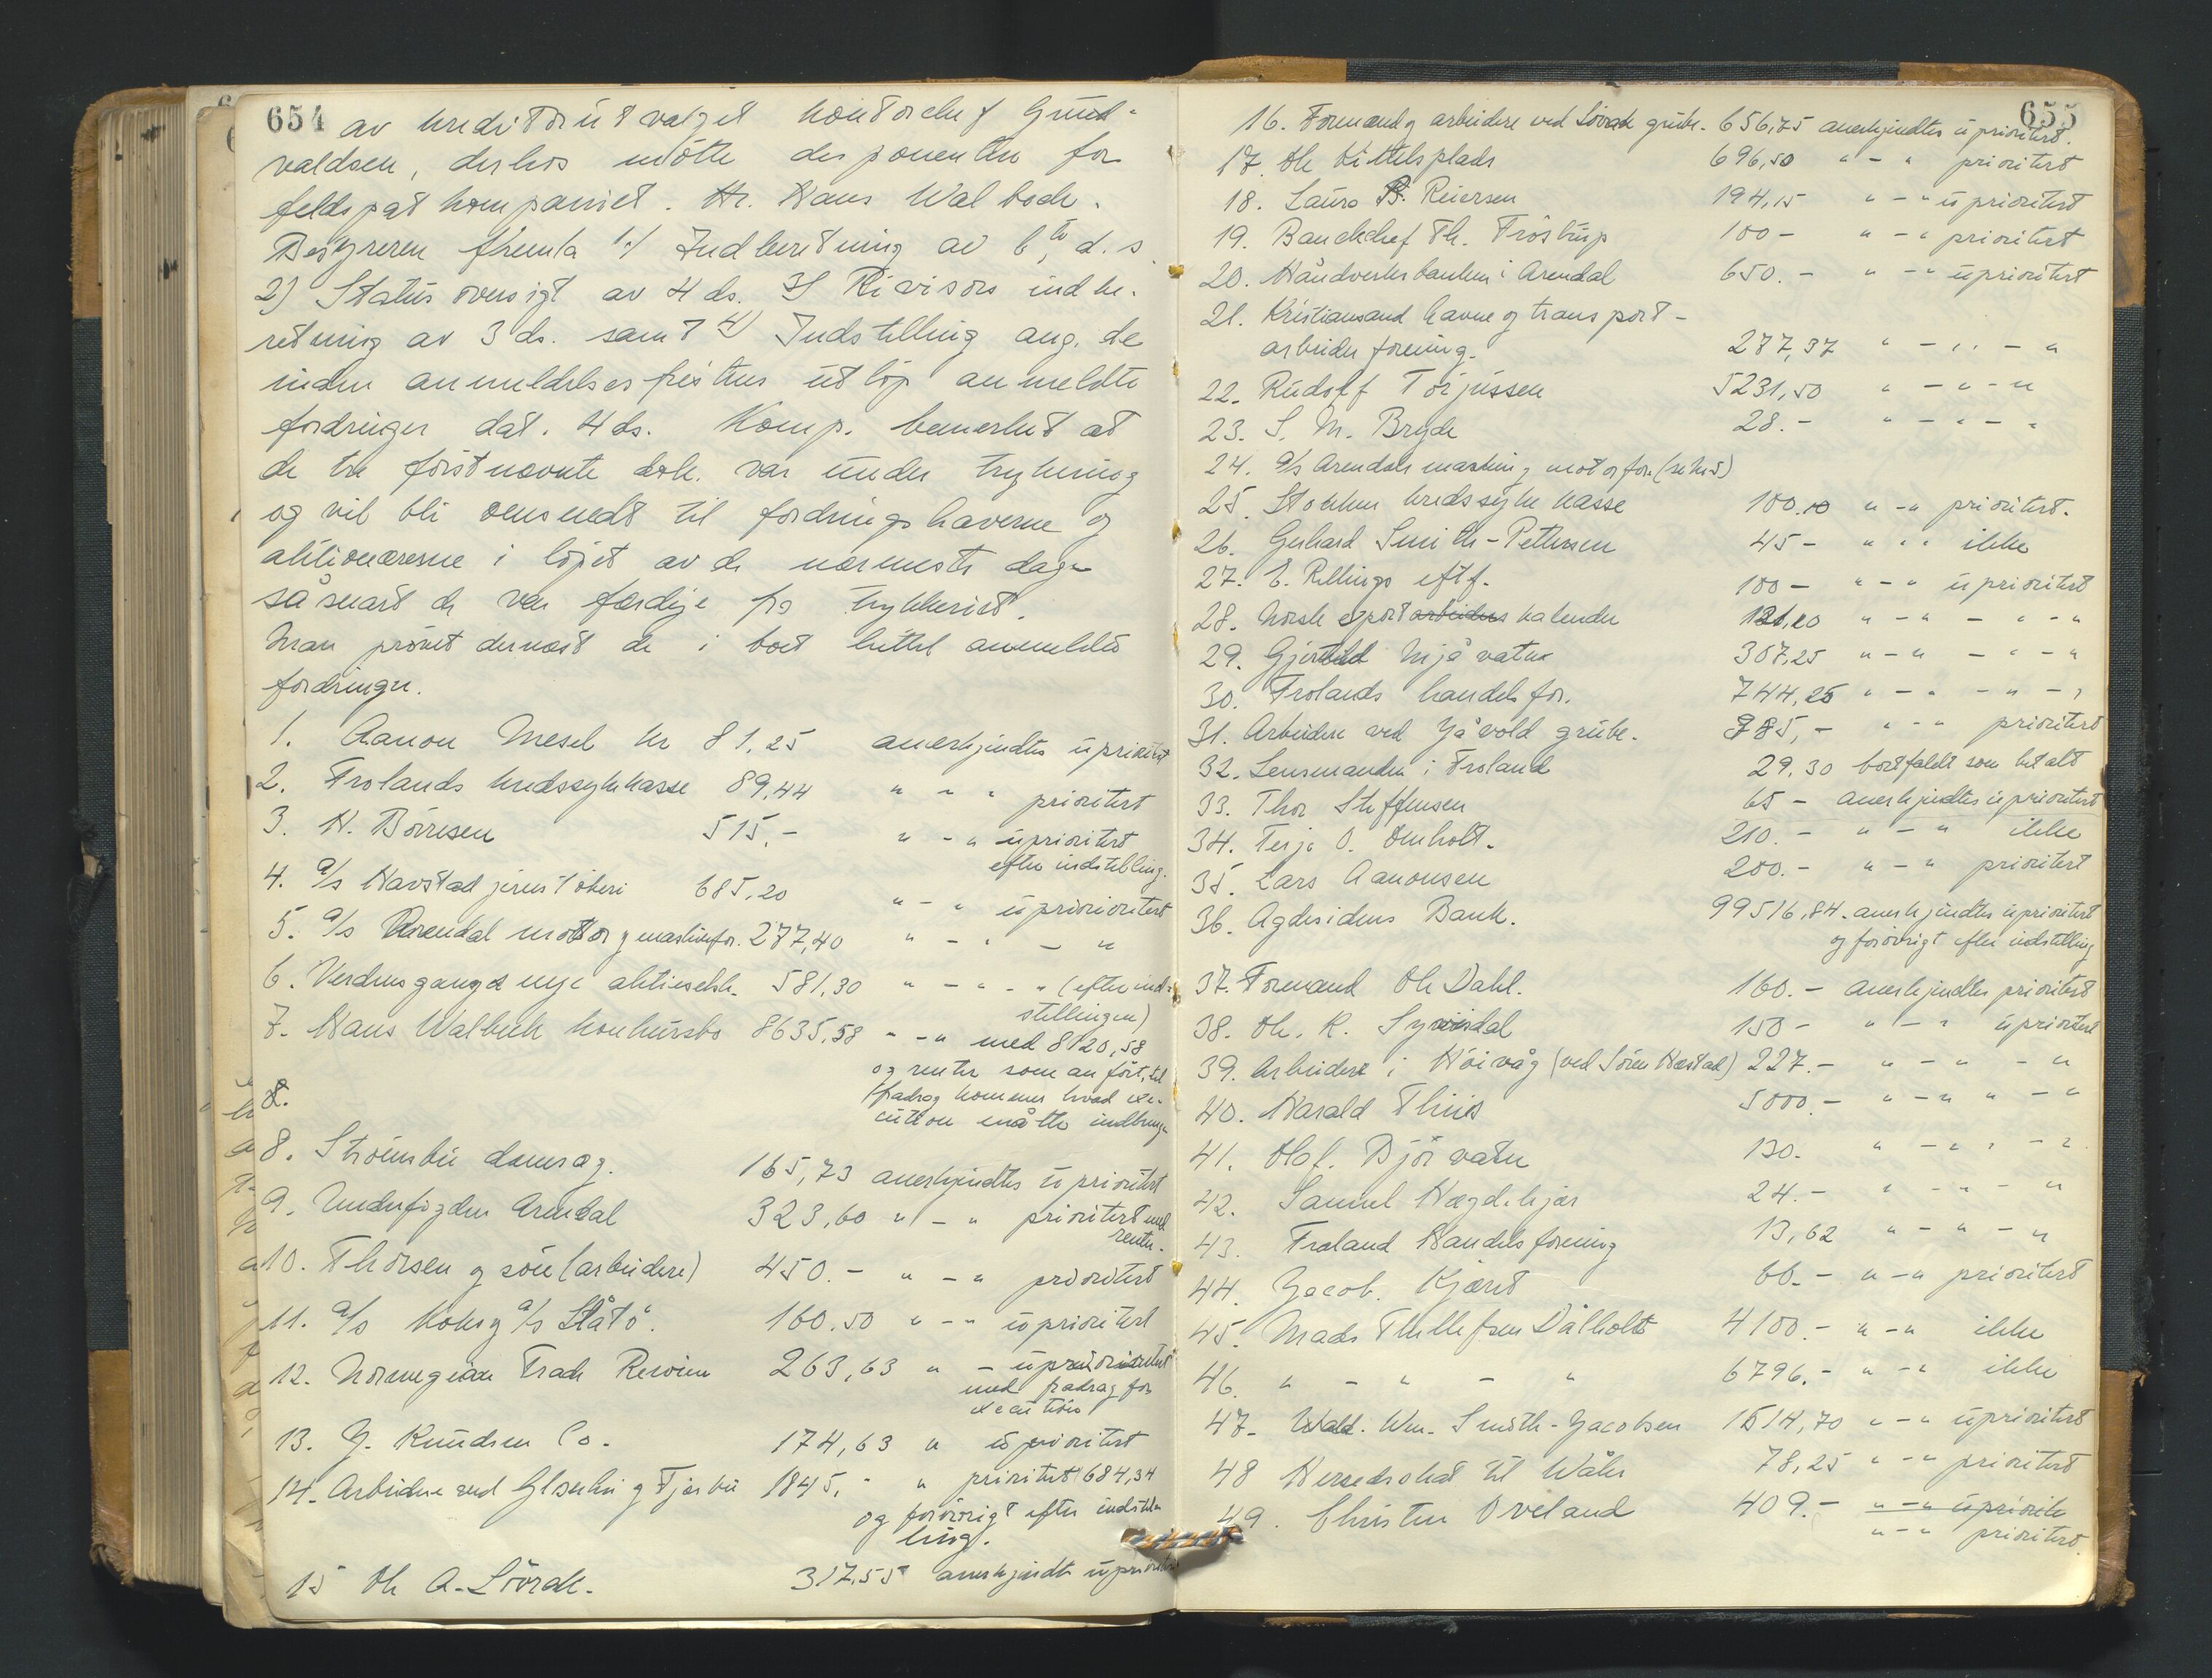 654
av kreditorutvalget kontorchef Gund-
valdsen, derhos mötte disponenten for
feldspatkompaniet. Hr. Hans Walbeck.
Bestyreren fremla 1) Indberetning av 6te d.s.
2) Status oversigt av 4 ds. 3) Revisors indbe-
retning av 3 ds. samt 4) Indstilling ang. de
inden anmeldelsesfristens utlöp anmeldte
fordringer dat. 4 ds. Komp. bemerket at
de tre förstnævnte dok. var under trykning
og vil bli omsendt til fordringshaverne og
aktionærerne i löpet av de nærmeste dage
så snart de var færdige fra trykkeriet.
Man prövet dernæst de i boet hittil anmeldte
fordringer.
1. Aanon Mesel kr 81,25 anerkjendtes uprioritert
2. Frolands kredssykekasse 89,44 " - " prioritert
3. H. Börresen 515,- " - " uprioritert
efter indstilling.
4. a/s Havstad jernstöberi 685,20 " - " uprioritert
5. a/s Arendal motor og maskinfor. 287,40 " - " - "
6. Verdensgangs nye aktieselsk. 581,30 " - " - " (efter ind-
stillingen)
7. Hans Walbeck konkursbo 8635,58 " - " med 8120,58
og renter som anfört, til
fradrag kommer hvad exe-
cution måtte indbringe
8. Strömsbu damsag. 165,73 anerkjendtes uprioritert
9. Underfogden Arendal 323,60 " - " prioritert med
renter.
10. Thorsen og sön (arbeidere) 450.- " - " prioritert
11. a/s Koks og a/s Ståtö. 160.50 " - " uprioritert
12. Norwegian Trade Rewiew 263,63 " - uprioritert
med fradrag for
execution
13. G. Knudsen Co. 174,63 " uprioritert
14. Arbeidere ved Gloserhei og Tjorbu 1845,- " prioritert 684,34
og forövrigt efter indstil-
ling.
15 Ole A. Lövrak. 317,55 anerkjendt uprioritert
655
16. Formand og arbeidere ved Lövrak grube. 656,75 anerkjendtes uprioritert.
17. Ole Littelsplads 696,50 " - " prioritert
18. Laura B. Reiersen 194,15 " - " uprioritert
19. Bankchef Th. Tröstrup 100 - " - " prioritert
20. Håndverkerbanken i Arendal 650.- " - " uprioritert
21. Kristiansand havne og transport-
arbeider forening. 277,37 " - " - "
22. Rudolf Torjussen 5231,50 " - " - "
23. S. M. Bryde 28.- " - " - "
24. a/s Arendals maskin og motorfor. (se kr 5)
25. Stokken kredssykekasse 100.10 " - " prioritert.
26. Gerhard Smith-Pettersen 45 - " " " ikke
27. E. Rellings eftf. 100 - " - " uprioritert
28. Norsk sport arbeiders kalender 131,20 " - " - " - "
29. Gjeruld Mjåvatn 307,25 " - " - " - "
30. Frolands handelsfor. 744,25 " - " - " - "
31. Arbeidere ved Gåvold grube. 785,- " - " prioritert
32. Lensmanden i Froland 29,30 bortfaldt som betalt
33. Thor Steffensen 65 - anerkjendtes uprioritert
34. Terje O. Omholt. 210.- " - " ikke
35. Lars Aanonsen 200.- " - " prioritert
36. Agdesidens Bank. 99516,84. anerkjendtes uprioritert
og forövrigt efter indstilling
37. Formand Ole Dahl. 160.- anerkjendtes prioritert
38. Ole. K. Syvisdal 150 - " - " uprioritert
39. Arbeidere i Höivåg (ved Sören Hæstad) 227.- " - " - "
40. Harald Thiis 5000.- " - " " - "
41. Olaf. Björvatn 130. " - " " - "
42. Samuel Hægdekjær 24.- " - " - "
43. Froland Handelsforening 13,62 " - " - "
44. Jacob. Kjæret 66.- " - " prioritert
45. Mads Thellefsen Dålholt 4100.- " - " ikke
46. " - " - " 6796.- " - " ikke
47. Wald. Wm. Smith-Jacobsen 1514,70 " - " uprioritert
48 Herredsskat til Wåler 78,25 " - " prioritert
49. Christen Oveland 409.- " - " upriorite
" - " prioritert.